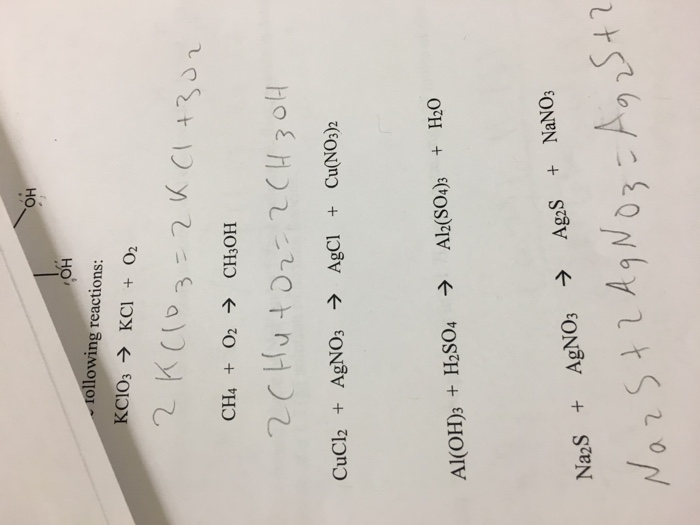 OH
OH
following reactions:
KClO3 → KCl + O2
2KClO3=2KCl+3O2
CH4 + O2 → CH3OH
2CH4+O2=2CH3OH
CuCl2 + AgNO3 → AgCl + Cu(NO3)2
Al(OH)3 + H2SO4 → Al2(SO4)3 + H2O
Na2S + AgNO3 → Ag2S + NaNO3
Na2S+2AgNO3=Ag2S+2